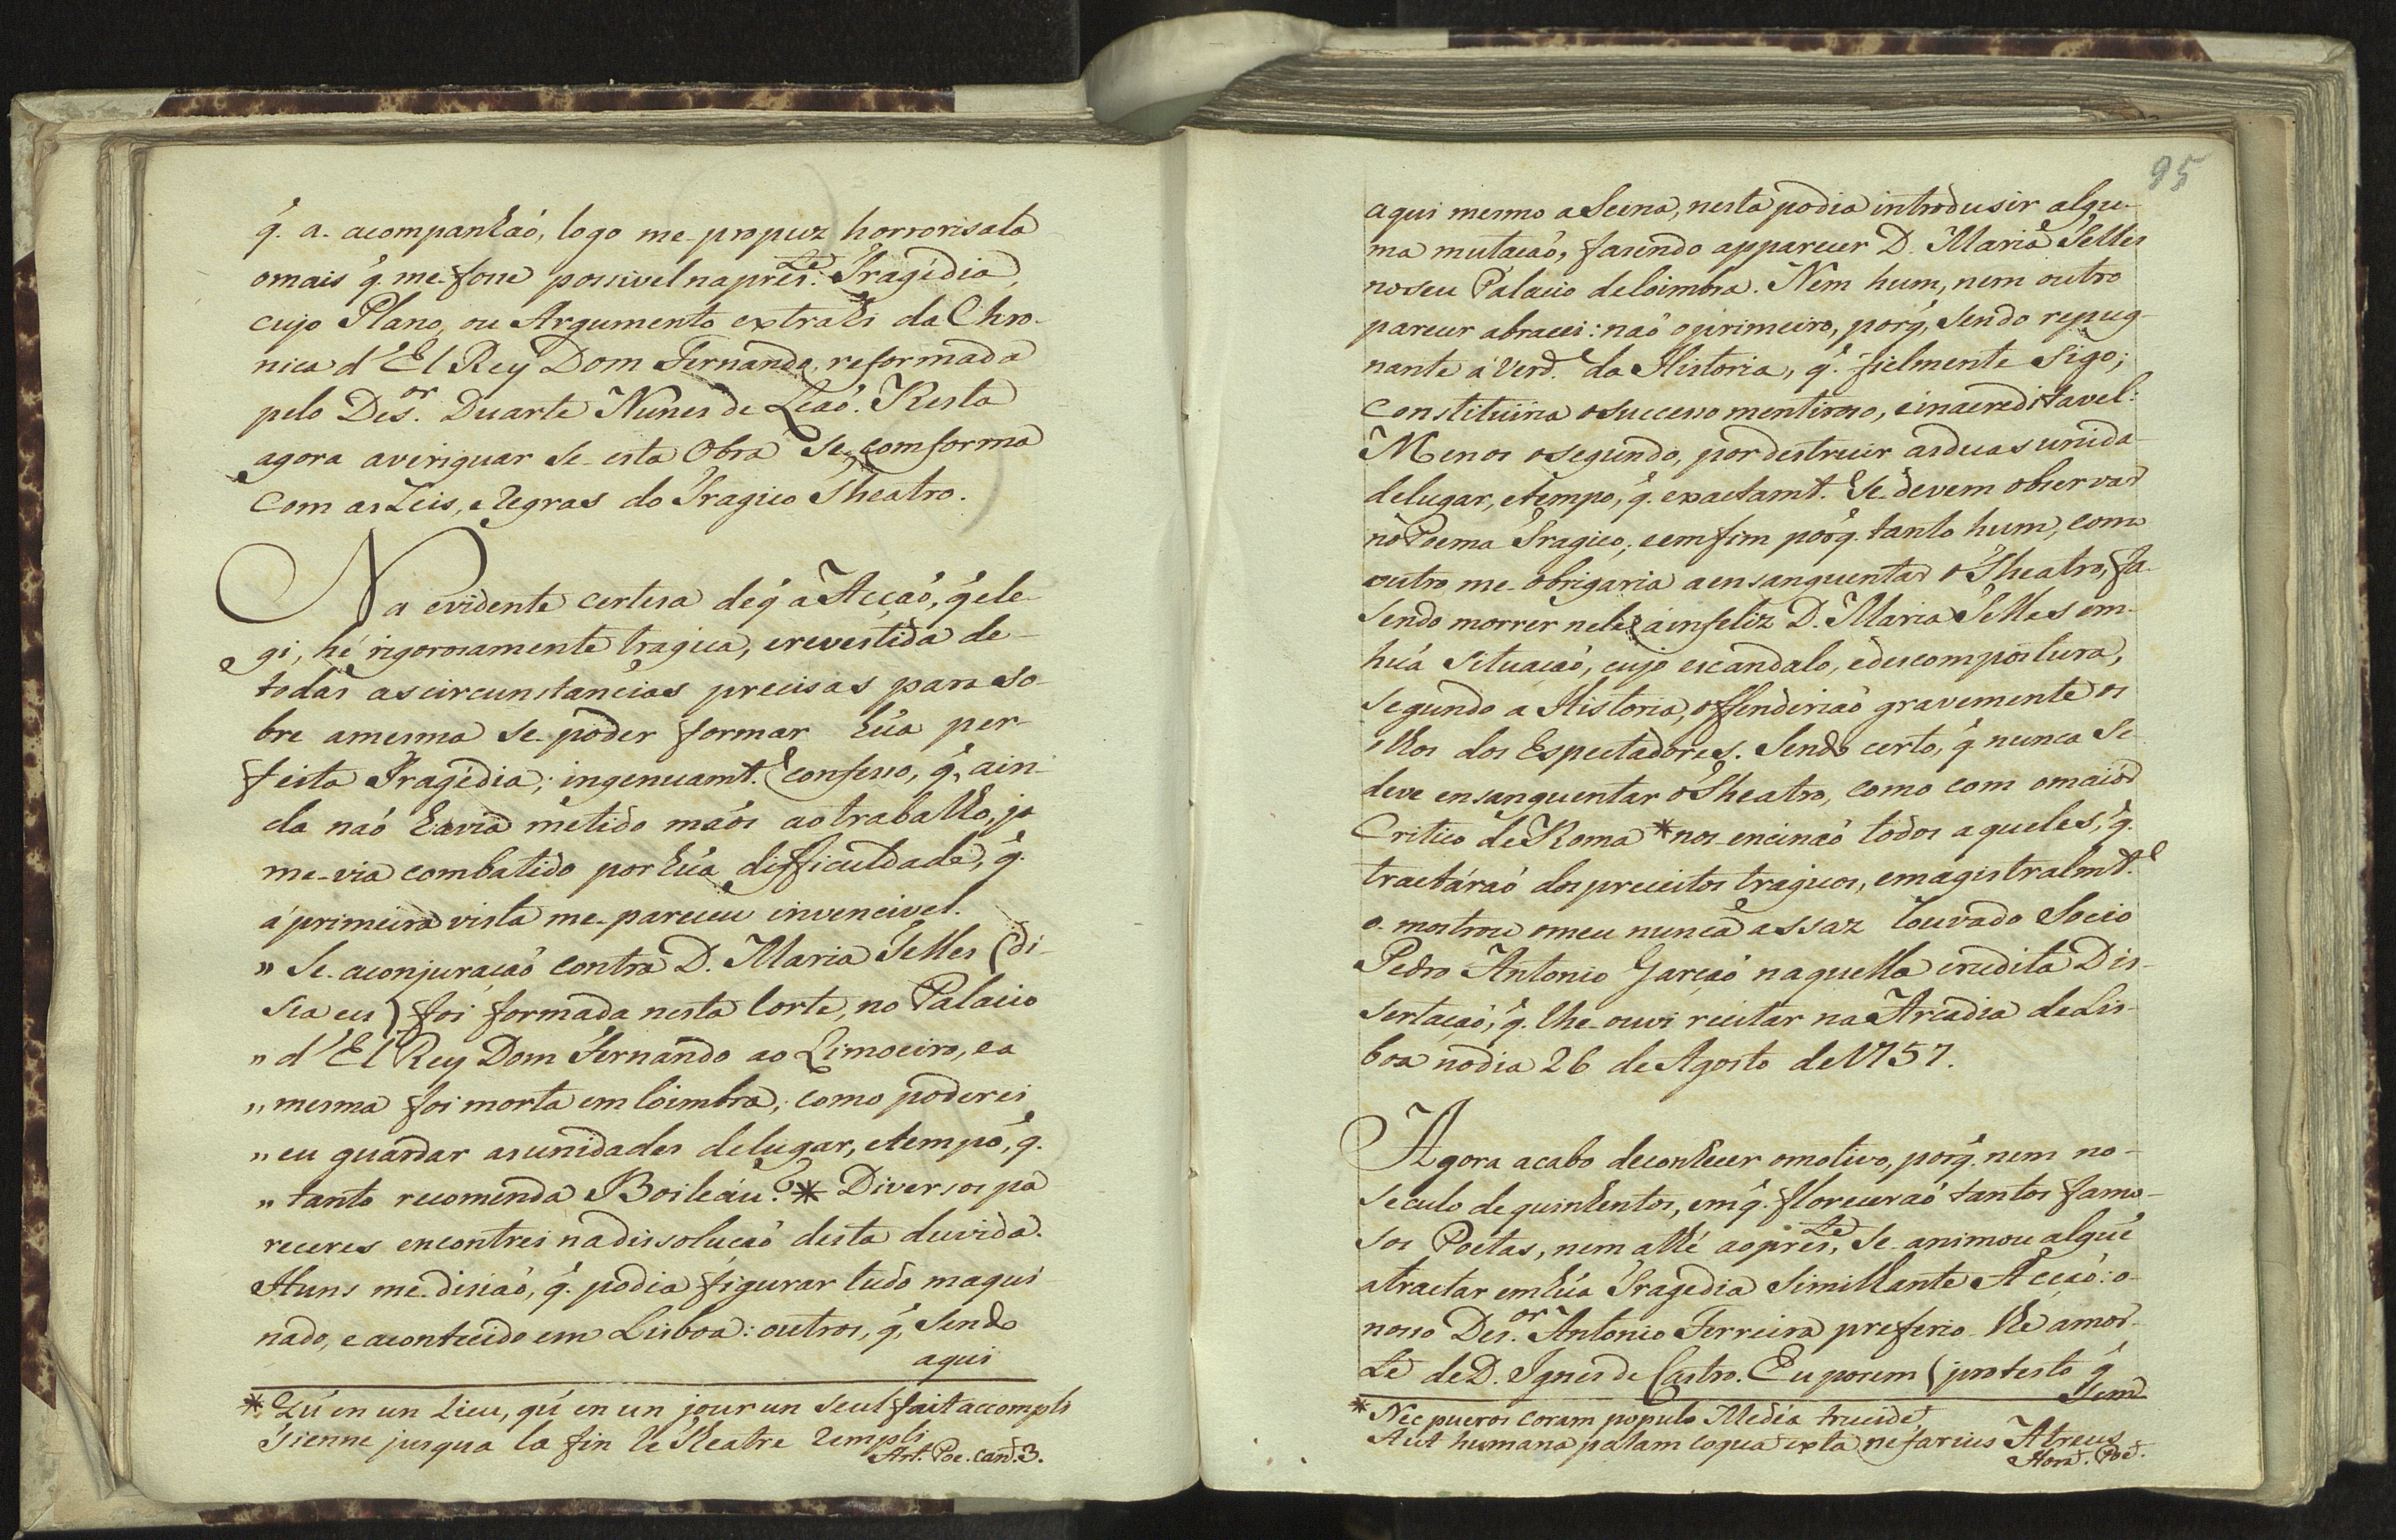 q̃. a. acompanhaõ, logo me-propuz horrorisala
omais q̃. me-fosse possivel napres.te Tragédia,
cujo Plano, ou Argumento extrahi da Chro-
nica d'El Rey Dom Fernando, reformada
pelo Des.or Duarte Nunes de Leaõ. Resta
agora averiguar se-esta Obra se-comforma
com as Leis, e Regras do Tragico Theatro.
Na evidente certesa deq̃ a Acçaõ, q̃ ele-
gi, hé rigorosamente tragica, erevestida de-
todas ascircunstancias precisas para so-
bre amesma se-poder formar hũa per-
feita Tragédia; ingenuamt.e confesso, q̃, ain-
da naõ havia metido maõs aotrabalho, ja
me-via combatido porhũa difficuldade, q̃.
áprimeira vista me-pareceu invencivel.
" Se-aconjuraçaõ contra D. Maria Telles (di-
sia eu) foi formada nesta Corte, no Palacio
" d'El Rey Dom Fernando ao Limoeiro, ea
" mesma foi morta em Coimbra; como poderei
" eu guardar asunidades delugar, etempo, q̃.
" tanto recomenda Boileáu? * Diversos pa
receres encontrei nadissoluçaõ desta duvida.
Huns me-disiaõ, q̃. podia figurar tudo maqui
nado, eacontecido em Lisboa: outros, q̃, sendo
aqui
* Qu'en un Lieu, qu'en un jour un seul fait accompli
Tienne jusqua la fin le Theatre rempli
Art. Poe. cant. 3.
95
aqui mesmo aScena, nesta podia introdusir algu-
ma mutacaõ, fasendo apparecer D. Maria Telles
noseu Palacio deCoimbra. Nem hum, nem outro
parecer abracei: naõ oprimeiro, porq̃, sendo repug-
nante á Verd.e da Historia, q̃. fielmente sigo;
Constituiria osuccesso mentiroso, einacreditavel:
Menos osegundo, pordestruir asduas unida-
delugar, etempo, q̃. exactamt.e se-devem observar
no Poema Tragico; eemfim porq̃. tanto hum, como
outro me-obrigaria aensanguentar o Theatro, fa-
sendo morrer nele áinfeliz D. Maria Telles em-
huá situacaõ, cujo escandalo, edescompostura,
segundo a Historia, offenderiaõ gravemente os
olhos dos Espectadores. Sendo certo, q̃ nunca se-
deve ensanguentar oTheatro, como com omaiór
Critico de Roma * nos-encinaõ todos aqueles, q̃.
tractáraõ dospreceitos tragicos, emagistralmt.e
o-mostrou omeu nunca assaz louvado Socio
Pedro Antonio Garçaõ naquella erudita Dis-
sertaçaõ, q̃. lhe-ouvi recitar na Arcadia deLis-
boa nodia 26 de Agosto de 1757.
Agora acabo deconhecer omotivo, porq̃. nem no-
seculo dequinhentos, emq̃. floreceraõ tantos famo-
sos Poetas, nem athé aopres.te, se-animou alguẽ
atractar emhũa Tragedia similhante Acçaõ: o-
nosso Des.or Antonio Ferreira preferio-lhe amor-
te deD. Ignes de Castro. Eu porem (protesto q̃
sem
* Nec pueros coram populo Medéa trucidet,
Aut humana palam coquat exta nefarius Atreus
Horat. Poet.